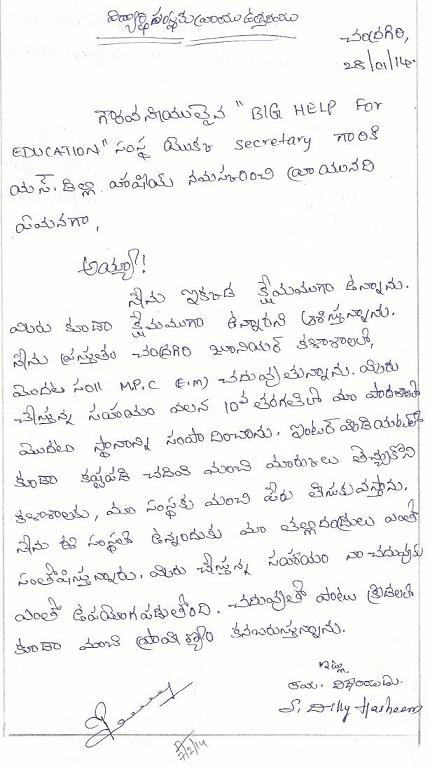 విద్యార్థి సంస్థకు వ్రాయు ఉత్తరము
చంద్రగిరి,
28/01/14.
గౌరవనీయులైన "BIG HELP For
EDUCATION" సంస్థ యొక్క secretary గారికి
యస్. ఢిల్లీ హాషీమ్ నమస్కరించి వ్రాయునది
ఏమనగా,
అయ్యా!
నేను ఇక్కడ క్షేమముగా ఉన్నాను.
మీరు కూడా క్షేమముగా ఉన్నారని ఆశిస్తున్నాను.
నేను ప్రస్తుతం చంద్రగిరి జూనియర్ కళాశాలలో,
మొదటి సం|| MP.C (E.M) చదువుతున్నాను. మీరు
చేస్తున్న సహాయం వలన 10వ తరగతిలో మా పాఠశాలకి
మొదటి స్థానాన్ని సంపాదించాను. ఇంటర్మీడియట్‌లో
కూడా కష్టపడి చదివి మంచి మార్కులు తెచ్చుకొని
కళాశాలకు, మా సంస్థకు మంచి పేరు తీసుకువస్తాను.
నేను ఈ సంస్థలో ఉన్నందుకు మా తల్లిదండ్రులు ఎంతో
సంతోషిస్తున్నారు. మీరు చేస్తున్న సహాయం నా చదువుకు
ఎంతో ఉపయోగపడుతోంది. చదువుతో పాటు క్రీడలలో
కూడా మంచి ప్రావీణ్యం కనబరుస్తున్నాను.
ఇట్లు
తమ విధేయుడు.
S. Dilly Hasheem
7/2/14